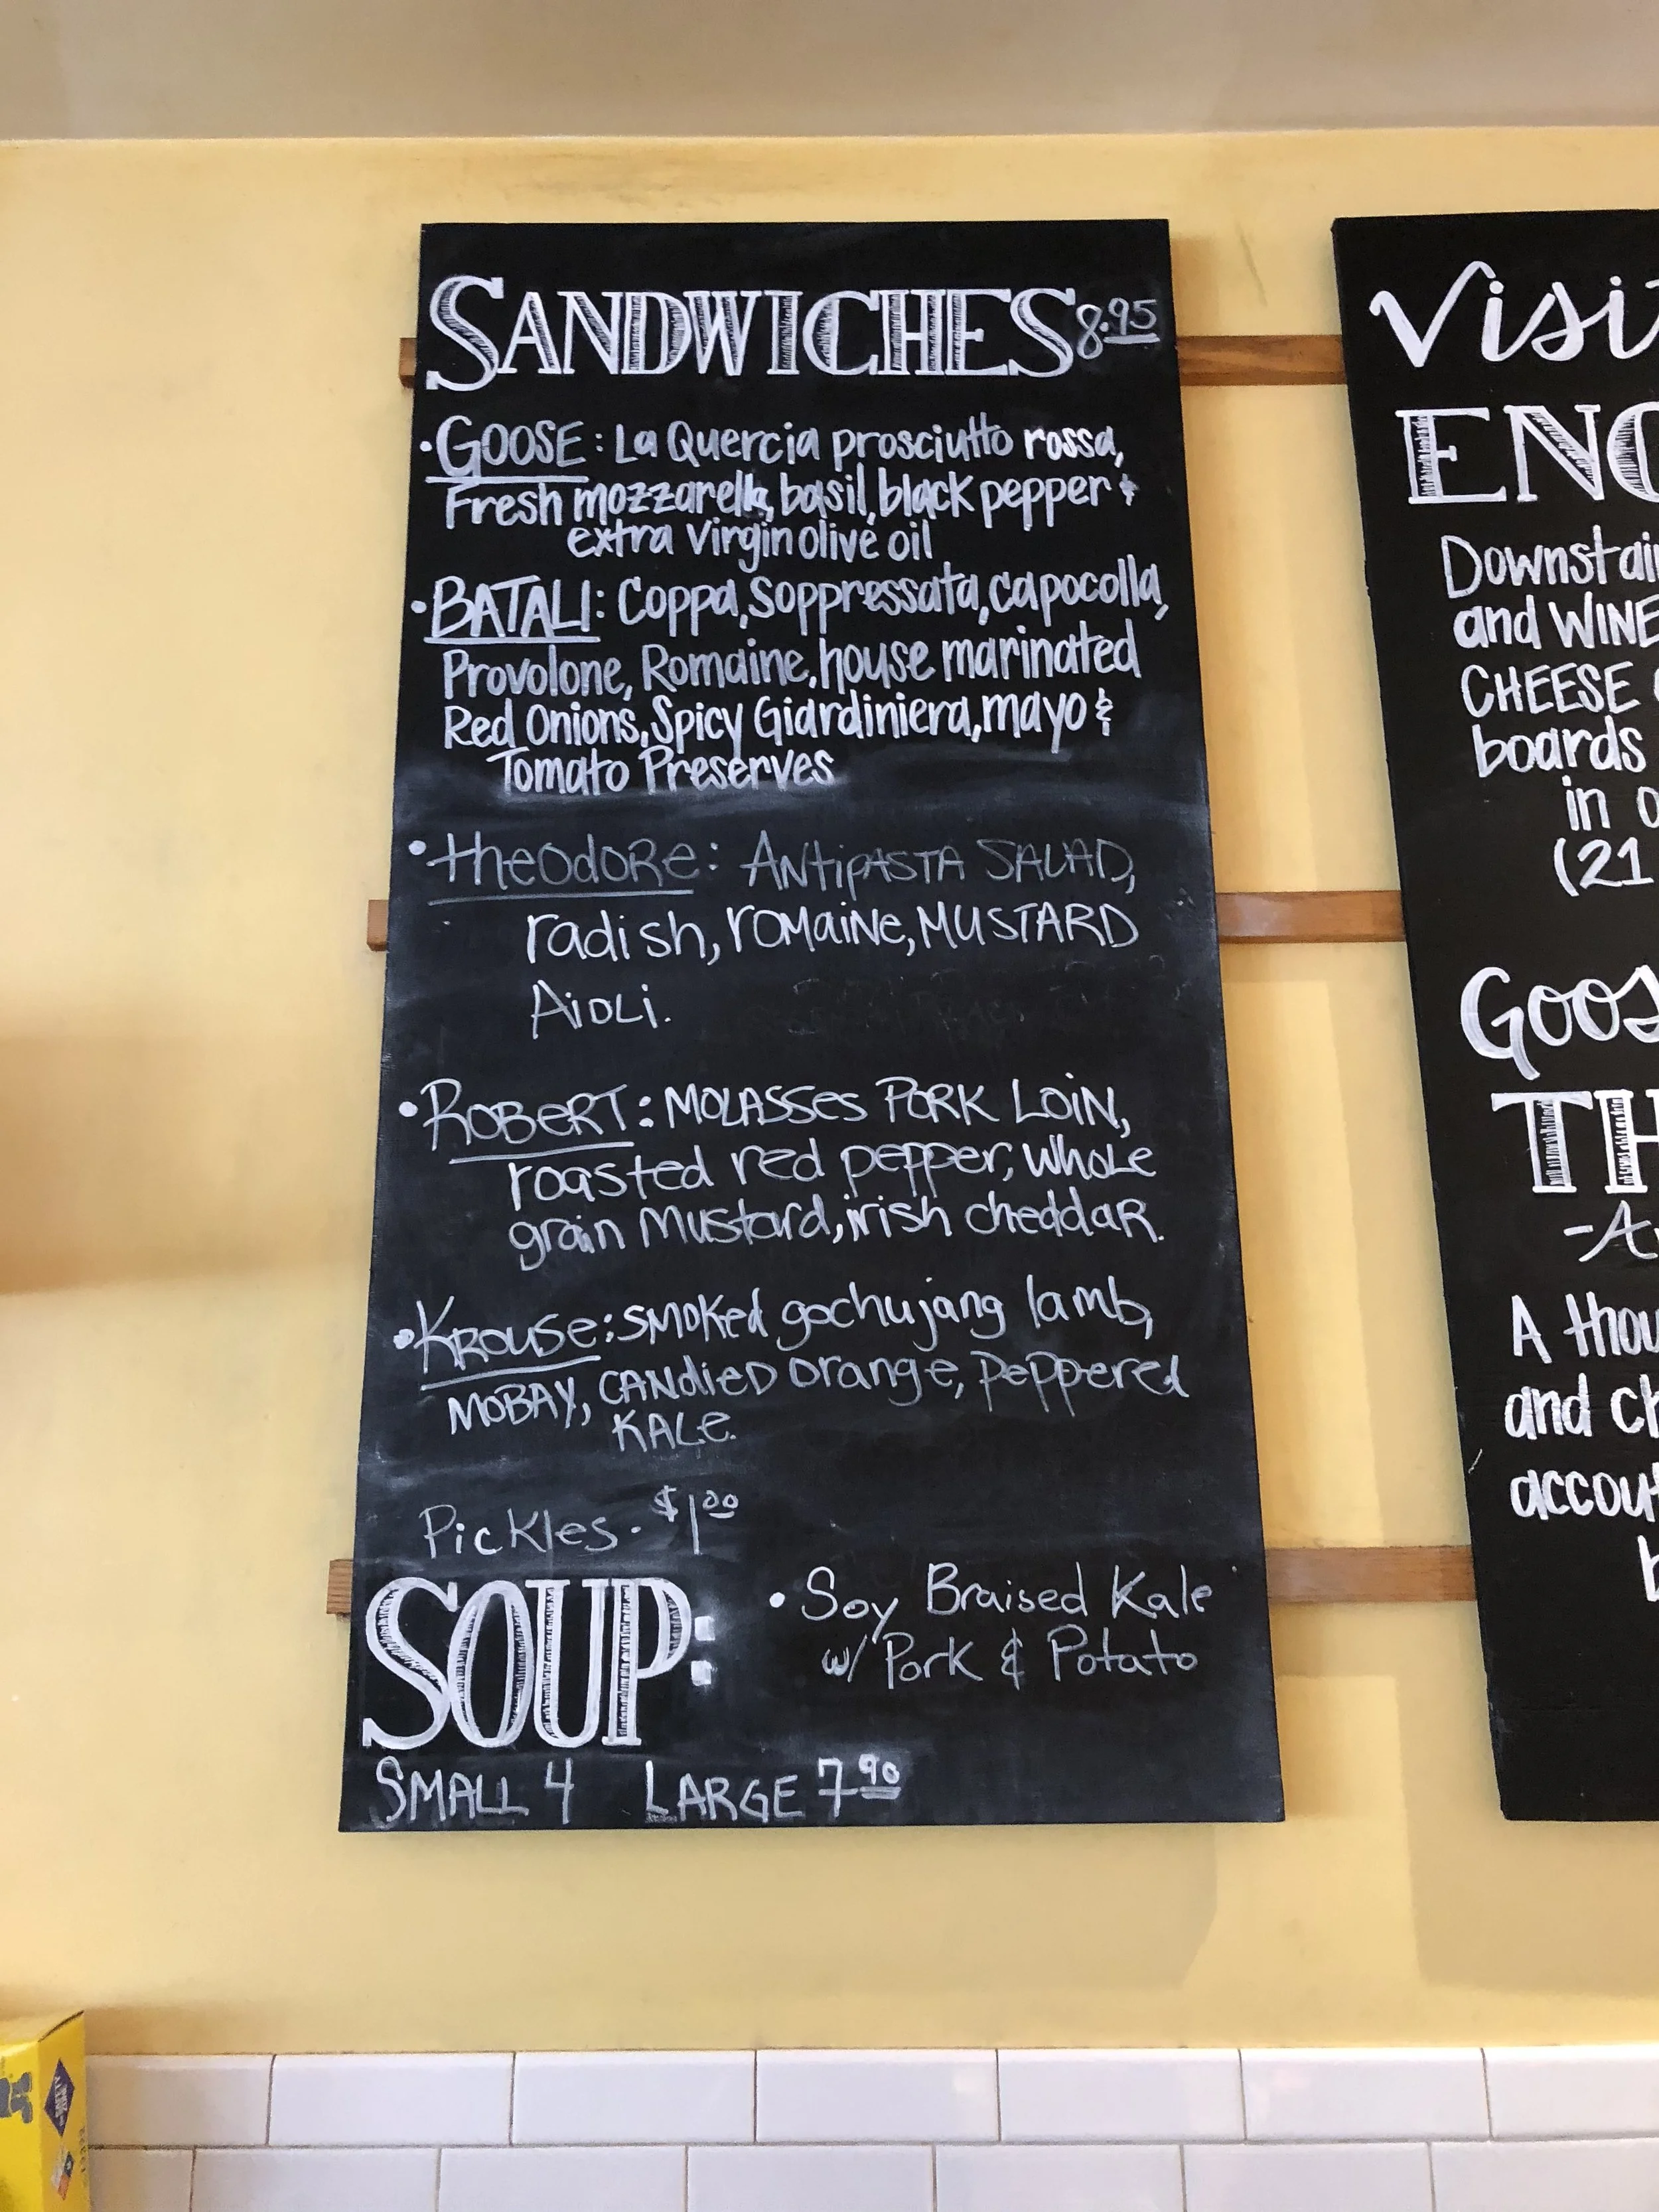 SANDWICHES 8.95
• GOOSE: La Quercia prosciutto rossa,
Fresh mozzarella, basil, black pepper &
extra virgin olive oil
• BATALI: Coppa, Soppressata, capocolla,
Provolone, Romaine, house marinated
Red Onions, Spicy Giardiniera, mayo &
Tomato Preserves
• theodore: ANtipASTA SALAD,
radish, romaine, MUSTARD
Aioli.
• ROBERT: MOLASSES PORK LOIN,
roasted red pepper, whole
grain Mustard, irish cheddar.
• KROUSE: smoked gochujang lamb,
MOBAY, CANdied orange, peppered
KALE.
Pickles. $1.00
SOUP:
• Soy Braised Kale
w/ Pork & Potato
SMALL 4 LARGE 7.90
Visi
EN
Downstai
and WINE
CHEESE
boards
in
(21
Goos
TH
A thou
and ch
accou